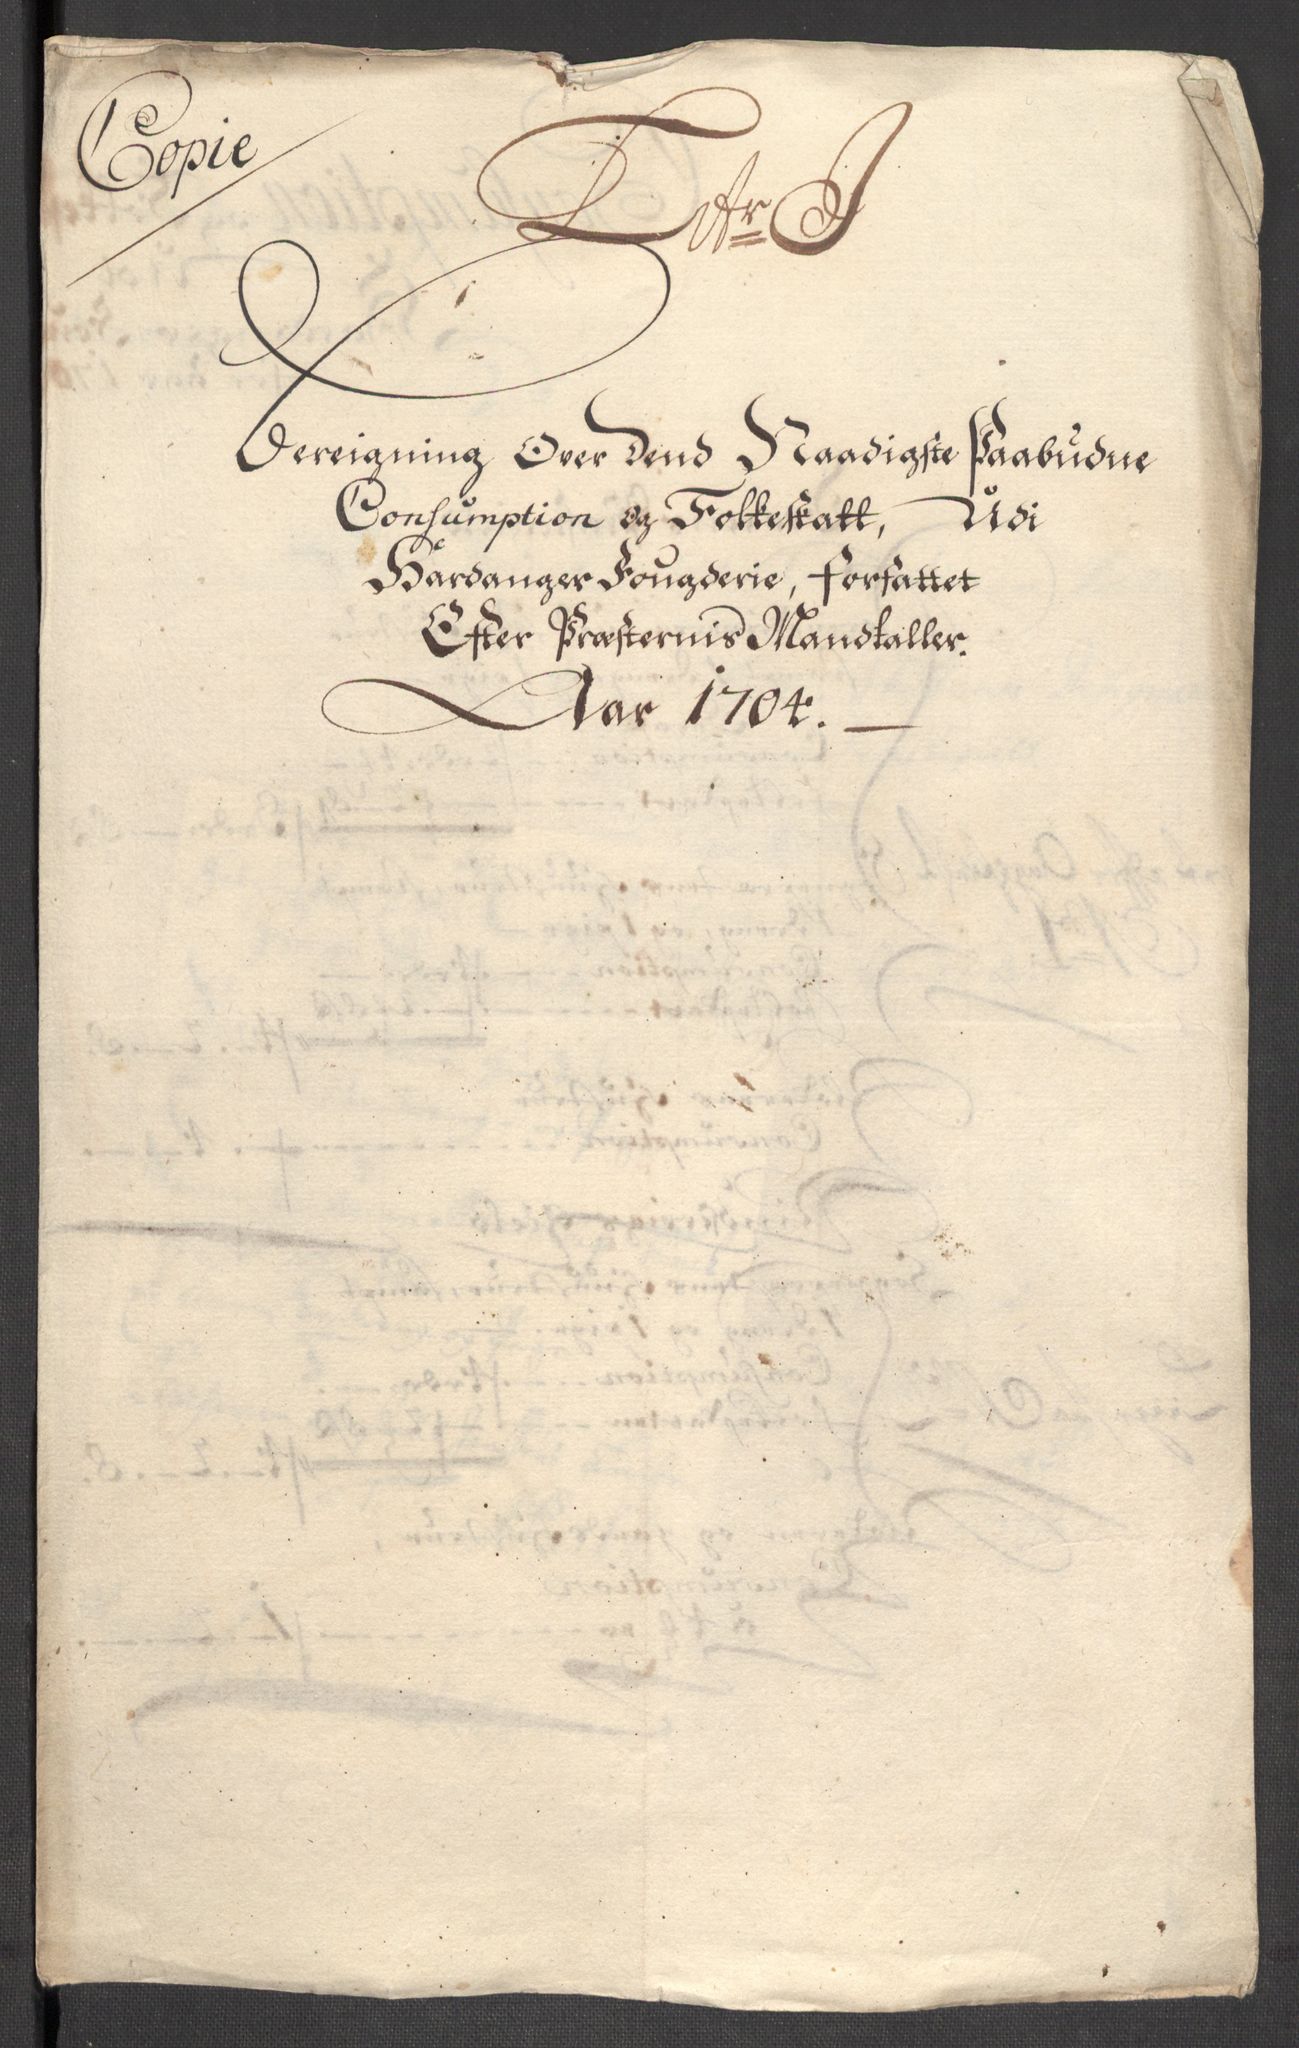 Copie
Litr J
Bereigning Over Dend Naadigste Paabudne
Consumption og Folkeskatt, Udi
Hardanger Fougderie, forfattet
Efter Præsternis Mandtaller.
Aar 1704.